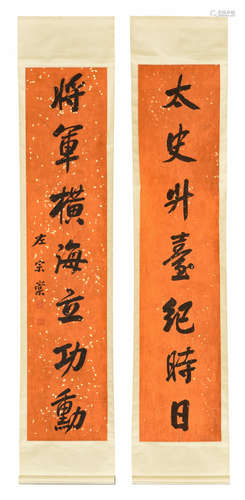 太史升臺紀時日
將軍橫海立功勳
左宗棠